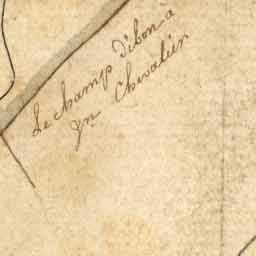 Le champ d'ébon à
Jn Chevalier